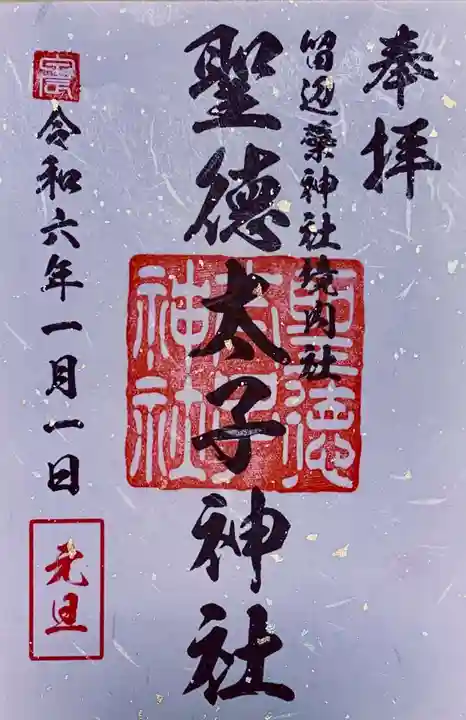 奉拝
留辺蘂神社境内社
聖徳太子神社
聖徳太子神社
令和六年一月一日
元旦